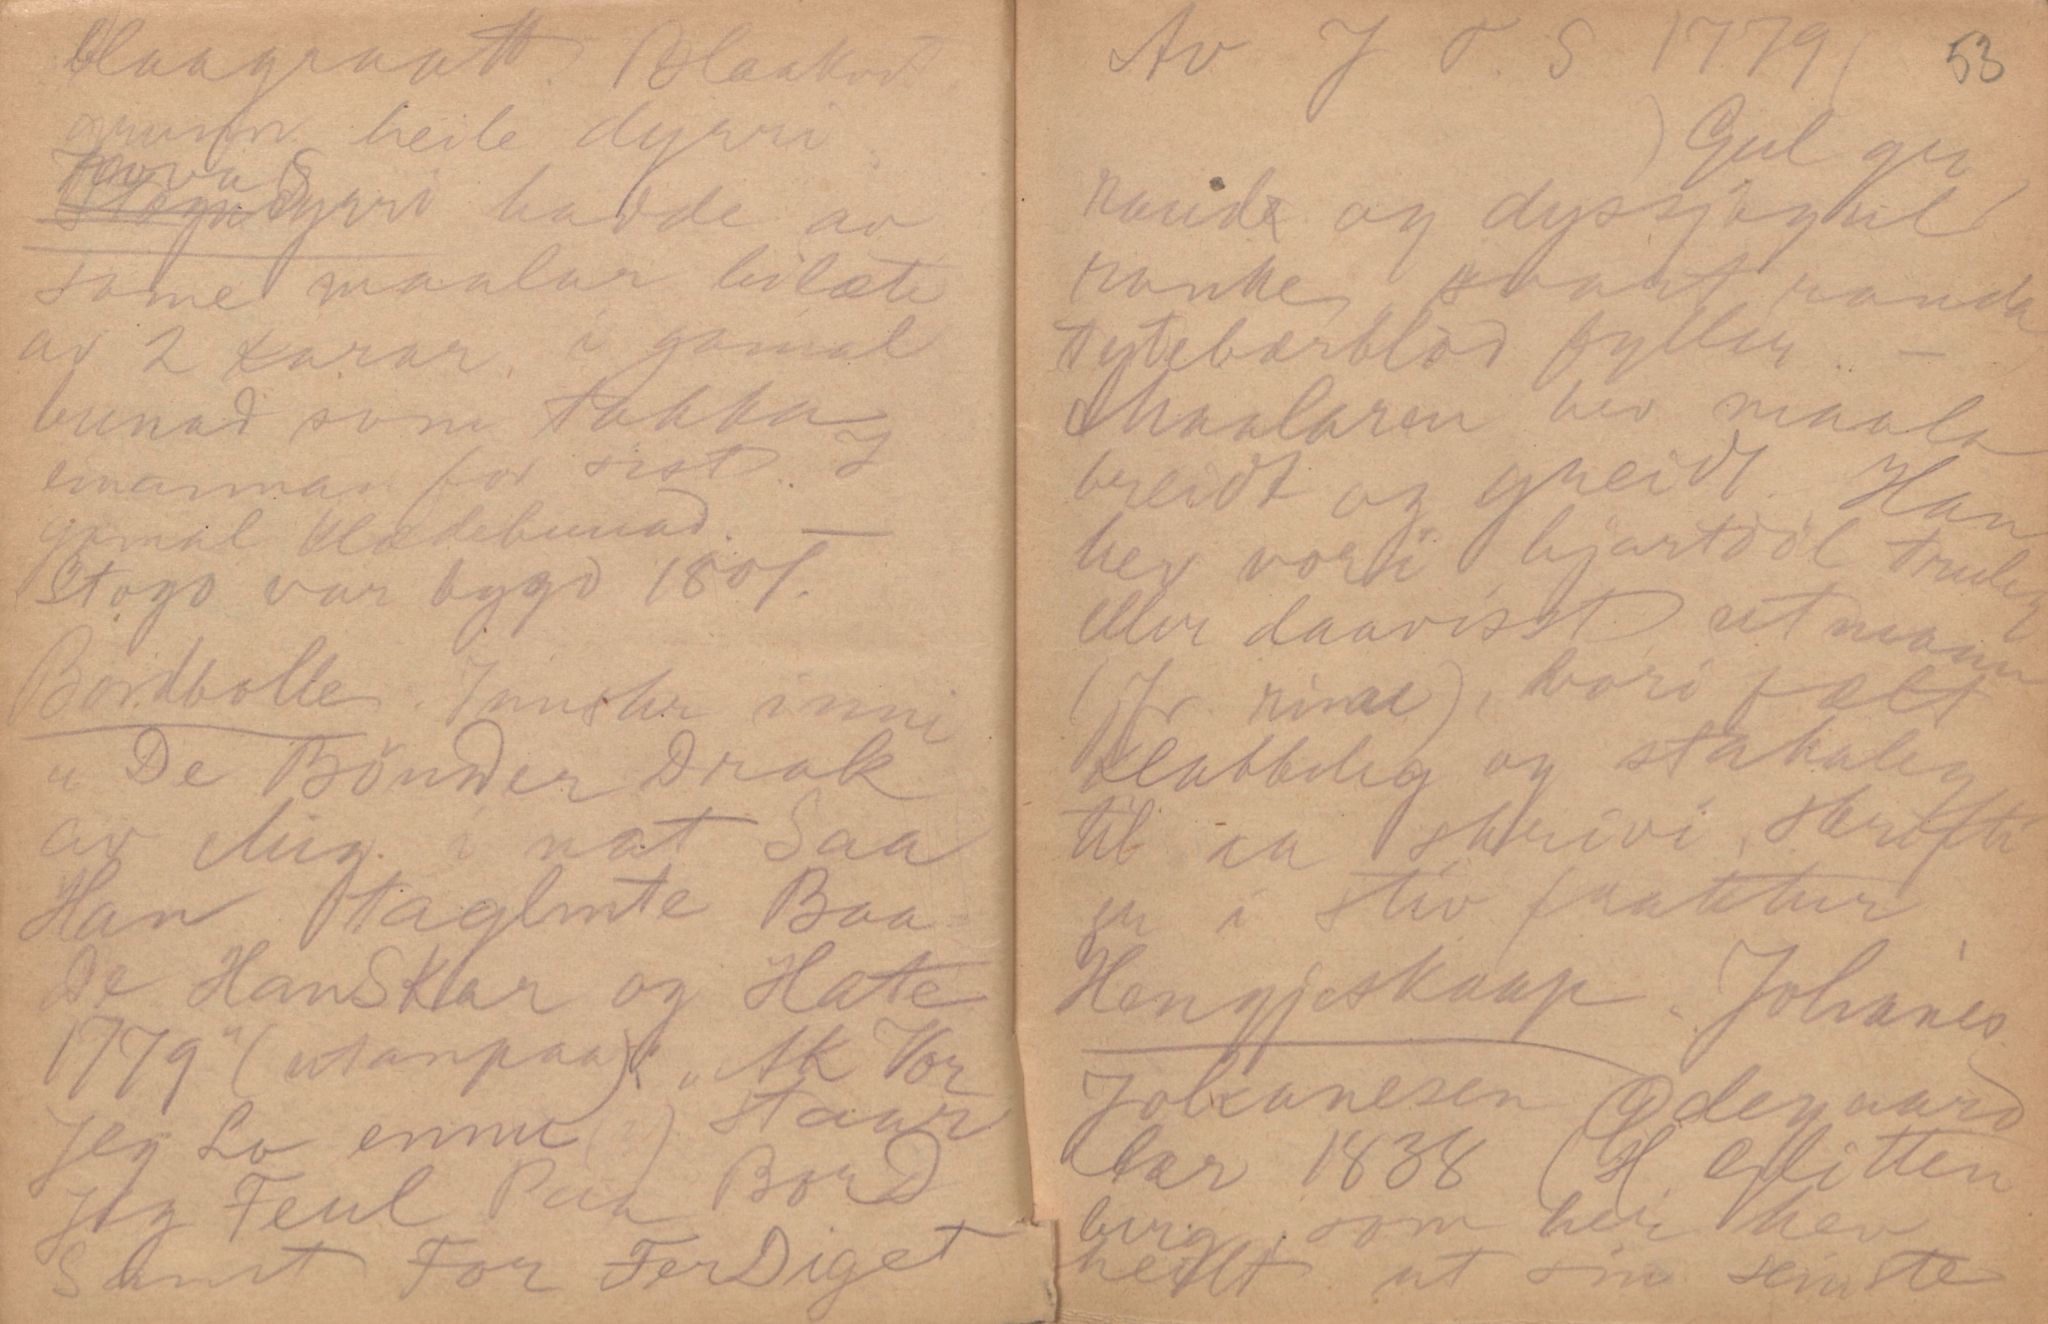 blaagraatt. Blaakvit
grunn heile dyrri.
Stogudyrri hadde av
same maalar bilæte
av 2 karar i gamal
bunad som takka
einannan for sist. I
gamal klædebunad. —
Stogo var bygd 1801.
Bordbolle. Innskr inni
"De Bönder Drak
av Mig i nat Saa
Han taglmte Baa
De HanSKar og Hate
1779" (utanpaa): "Ak Vor
Jeg Lo ennu ( ) staar
Jeg Feul Paa BorD
Samt For FerDiget
Av J O. S 1779
53
Gul gr
raude og dyssjøgul
ranke, svart rauda
tytebærblod fyller. —
Maalaren hev maala
breidt og greidt. Han
hev vori hjartdöl truleg
eller daavisst utmann
(Jfr rima), vori fælt
klabbeleg og stakaleg
til aa skrivi, skrifti
er i stiv fraktur
Hengjeskaap. Johanes
Johanesen Ødegaard
Aar 1838 (H. Glitten
berg, som her hev
heilt ut sin seinste